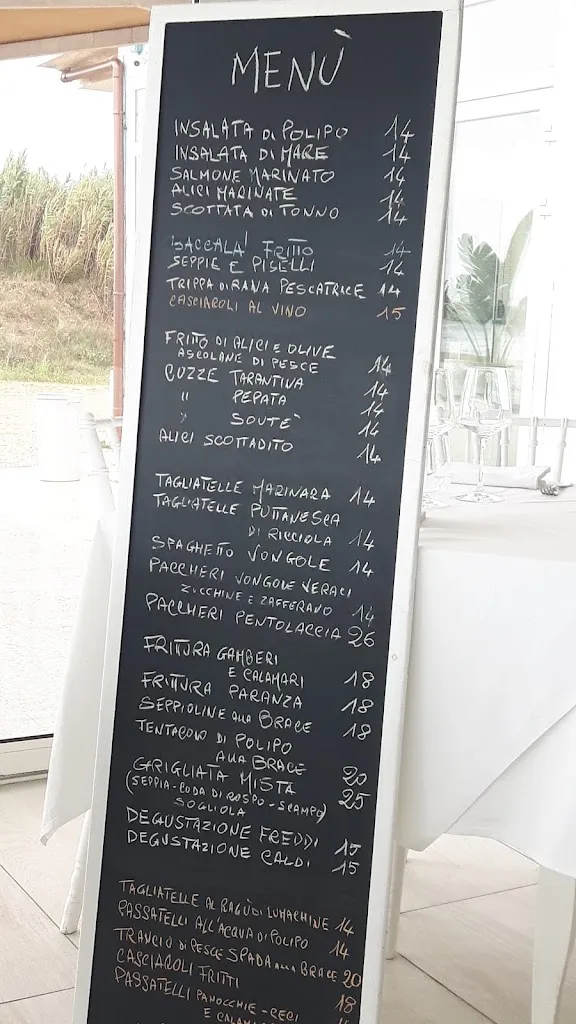 MENÙ
INSALATA DI POLIPO 14
INSALATA DI MARE 14
SALMONE MARINATO 14
ALICI MARINATE 14
SCOTTATA DI TONNO 14
BACCALA' FRITTO 14
SEPPIE E PISELLI 14
TRIPPA DI RANA PESCATRICE 14
CASCIAROLI AL VINO 15
FRITTO DI ALICI E OLIVE
ASCOLANE DI PESCE 14
COZZE TARANTINA 14
" PEPATA 14
" SOUTÈ 14
ALICI SCOTTADITO 14
TAGLIATELLE MARINARA 14
TAGLIATELLE PUTTANESCA
DI RICCIOLA 14
SPAGHETTO VONGOLE 14
PACCHERI VONGOLE VERACI
ZUCCHINE E ZAFFERANO 14
PACCHERI PENTOLACCIA 26
FRITTURA GAMBERI
E CALAMARI 18
FRITTURA PARANZA 18
SEPPIOLINE ALLA BRACE 18
TENTACOLO DI POLIPO
ALLA BRACE 20
GRIGLIATA MISTA 25
(SEPPIA-CODA DI ROSPO-SCAMPO)
SOGLIOLA
DEGUSTAZIONE FREDDI 15
DEGUSTAZIONE CALDI 15
TAGLIATELLE AL RAGÙ DI LUMACHINE 14
PASSATELLI ALL'ACQUA DI POLIPO 14
TRANCIO DI PESCE SPADA ALLA BRACE 20
CASCIAROLI FRITTI 18
PASSATELLI PANOCCHIE-CECI
E